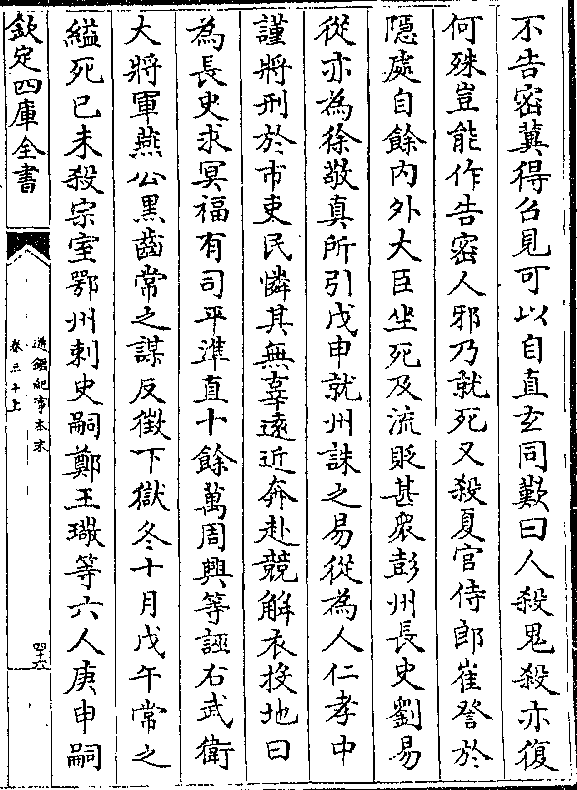 不告密冀得召見可以自直玄同歎曰人殺鬼殺亦復
何殊豈能作告密人邪乃就死又殺夏官侍郎崔詧於
隱處自餘内外大臣坐死及流貶甚衆彭州長史劉易
從亦為徐敬真所引戊申就州誅之易從為人仁孝中
謹將刑於市吏民憐其無辜遠近奔赴競解衣投地曰
為長史求冥福有司平準直十餘萬周興等誣右武衛
大將軍燕公黑齒常之謀反徵下獄冬十月戊午常之
縊死已未殺宗室鄂州刺史嗣鄭王璥等六人庚申嗣
欽定四庫全書
通鑑紀事本末
卷三十上
四十六